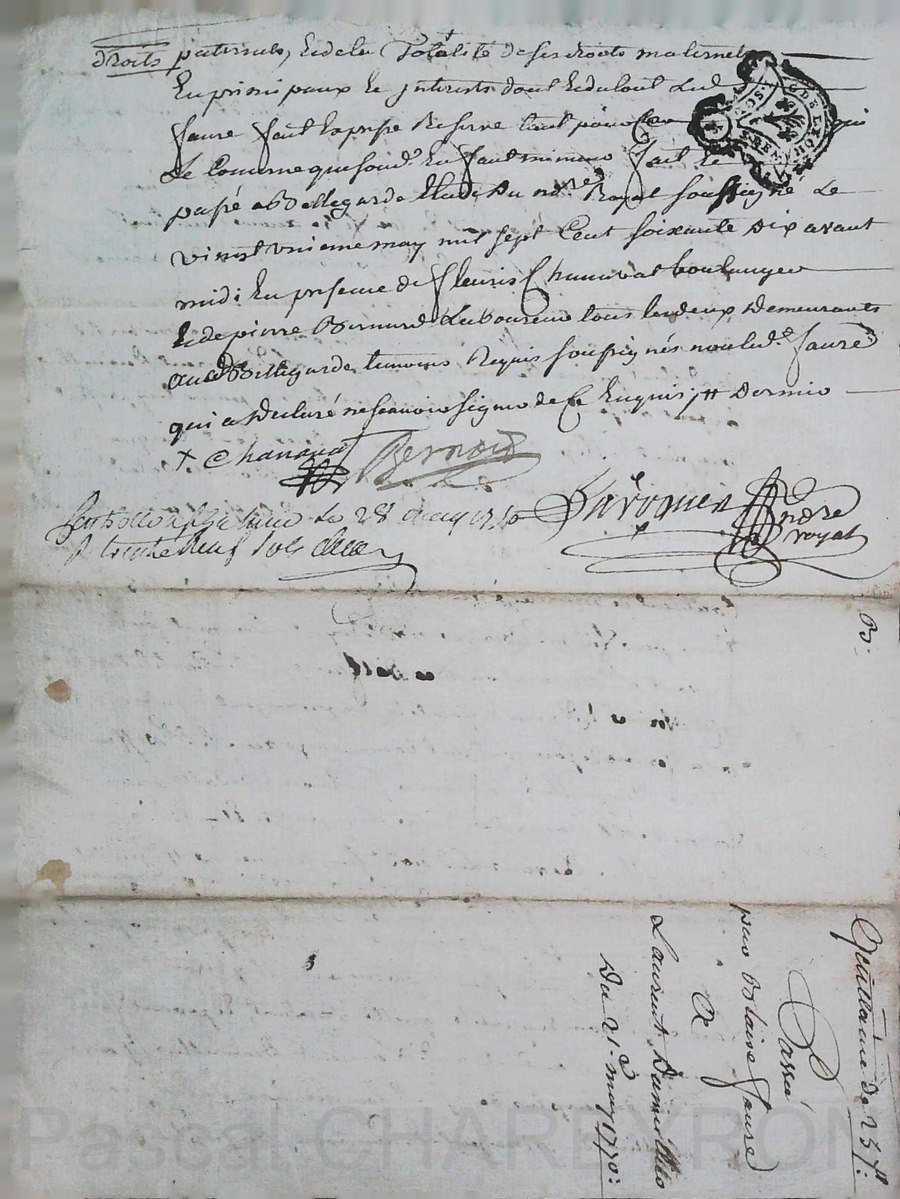 droits paternels, et de la totalité de ses droits maternels
En principaux et interests dont et du tout led
faure fait expresse Reserve tout pour
Le Comme qui soud. En fait mineur fait et
passé a Bellegarde Etude du no.re Royal soussigné Le
vingt unieme may mil sept Cent soixante dix avant
midi En presence de fleuris Chanavat boulanger
et de pierre Bernard Laboureur tous les deux Demeurants
aud Bellegarde temoins Requis soussignés non led. faure
qui a declaré ne scavoir signer de Ce Enquis
+ Chanavat Bernard
le 28 may 1770
R treize
André
royal
Quittance de 25 tt:
Passé
par Blaise faure
A
Laurent
Du 21.e may 1770:
Pascal CHAREYRON